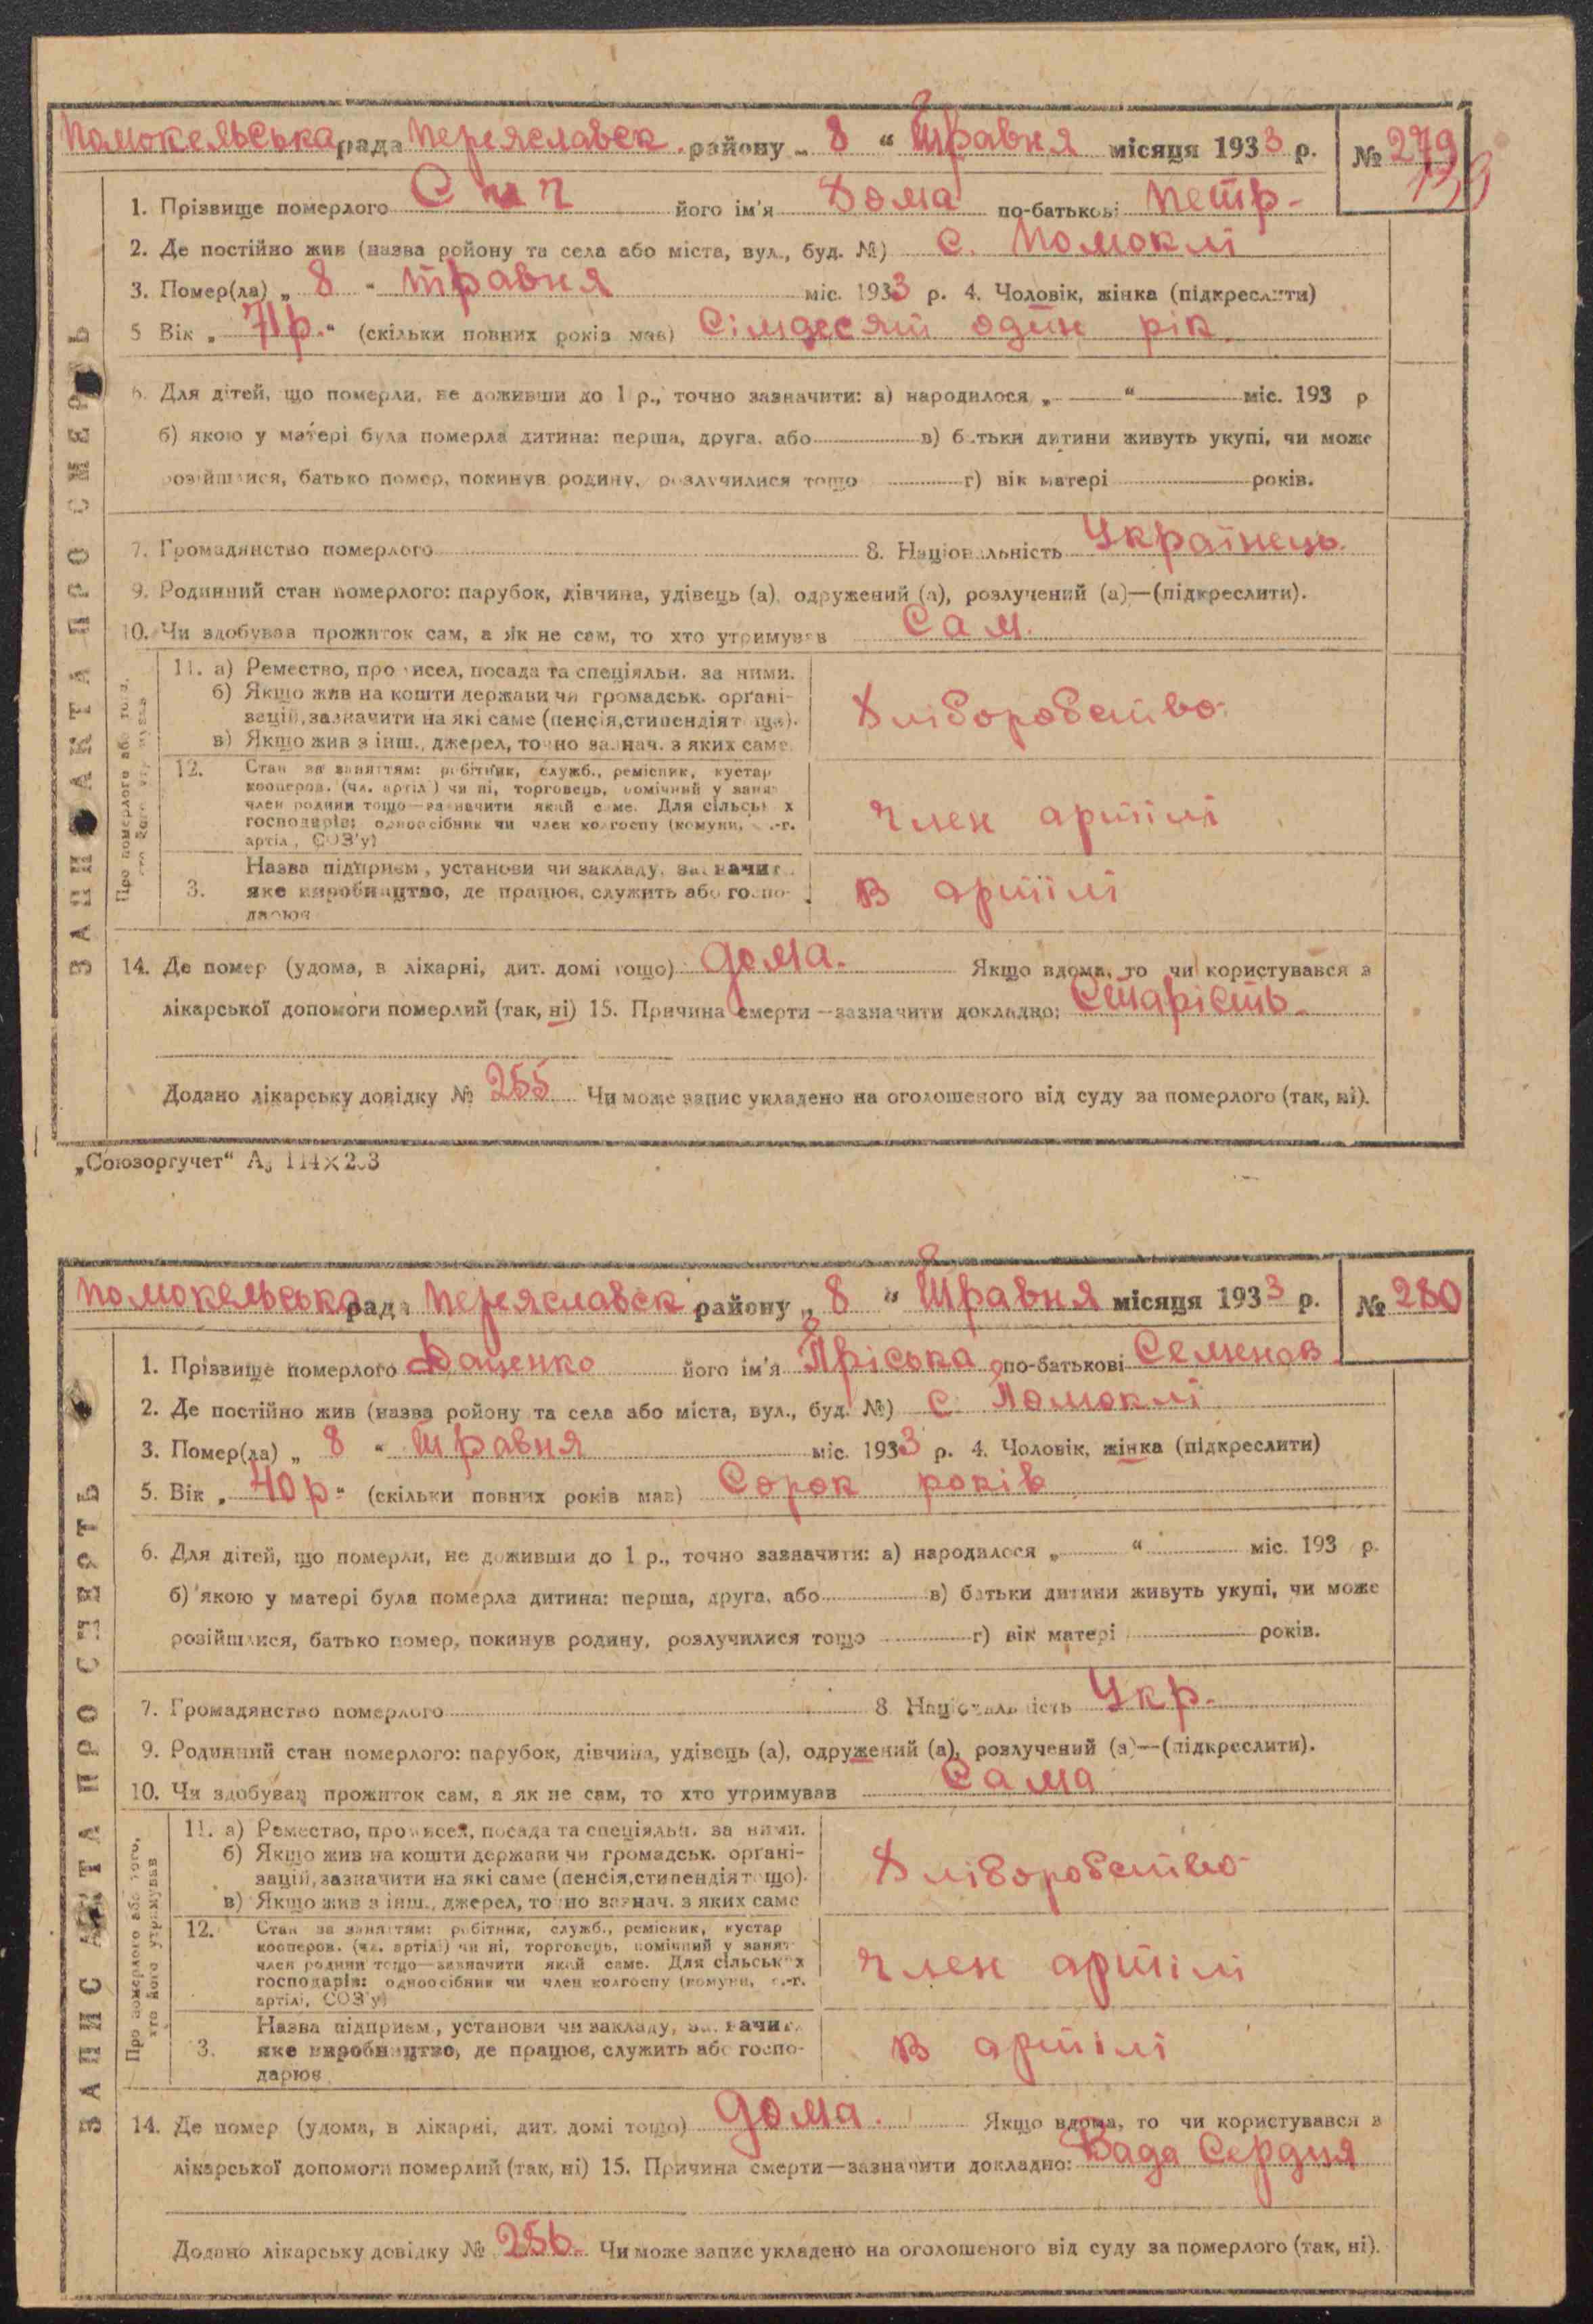 Помокельська рада Переяславск. району „ 8 “ Травня місяця 1933 р. № 279
139
1. Прізвище померлого Сич його ім'я Хома по-батькові Петр-
2. Де постійно жив (назва ройону та села або міста, вул., буд. №) с. Помоклі
3. Помер(ла) „ 8 “ травня міс. 1933 р. 4. Чоловік, жінка (підкреслити)
5 Вік „ 71 р. “ (скільки повних років мав) Сімдесят один рік
6. Для дітей, що померли, не доживши до 1 р., точно зазначити: а) народилося „ “ міс. 193 р
б) якою у матері була померла дитина: перша, друга, або в) батьки дитини живуть укупі, чи може
розійшлися, батько помер, покинув родину, розлучилися тощо г) вік матері років.
7. Громадянство померлого 8. Національність Українець.
9. Родинний стан померлого: парубок, дівчина, удівець (а), одружений (а), розлучений (а)—(підкреслити).
10. Чи здобував прожиток сам, а як не сам, то хто утримував Сам.
11. а) Ремество, промисел, посада та спеціяльн. за ними.
б) Якщо жив на кошти держави чи громадськ. організацій, зазначити на які саме (пенсія, стипендія тощо).
в) Якщо жив з інш., джерел, точно зазнач. з яких саме
Хліборобство
12. Стан за заняттям: робітник, служб., ремісник, кустар
кооперов. (чл. артіл.) чи ні, торговець, помічний у занят.
член родини тощо—зазначити який саме. Для сільських
господарів: одноосібник чи член колгоспу (комуни, с.-г.
артіл., СОЗ'у)
член артілі
3. Назва підприєм., установи чи закладу, зазначит.
яке виробництво, де працює, служить або госпо-
дарює
в артілі
14. Де помер (удома, в лікарні, дит. домі тощо) дома. Якщо вдома, то чи користувався з
лікарської допомоги померлий (так, ні) 15. Причина смерти—зазначити докладно: Старість.
Додано лікарську довідку № 255 Чи може запис укладено на оголошеного від суду за померлого (так, ні).
ЗАПИС АКТА ПРО СМЕРТЬ
Про померлого або того, хто його утримував
„Союзоргучет“
Помокельська рада Переяславск району „ 8 “ Травня місяця 1933 р. № 280
1. Прізвище померлого Даценко його ім'я Пріська по-батькові Семенов
2. Де постійно жив (назва ройону та села або міста, вул., буд. №) с Помоклі
3. Помер(ла) „ 8 “ травня міс. 1933 р. 4. Чоловік, жінка (підкреслити)
5. Вік „ 40 р “ (скільки повних років мав) Сорок років
6. Для дітей, що померли, не доживши до 1 р., точно зазначити: а) народилося „ “ міс. 193 р.
б) якою у матері була померла дитина: перша, друга, або в) батьки дитини живуть укупі, чи може
розійшлися, батько помер, покинув родину, розлучилися тощо г) вік матері років.
7. Громадянство померлого 8 Національність Укр.
9. Родинний стан померлого: парубок, дівчина, удівець (а), одружений (а), розлучений (а)—(підкреслити).
10. Чи здобував прожиток сам, а як не сам, то хто утримував Сама
11. а) Ремество, промисел, посада та спеціяльн. за ними.
б) Якщо жив на кошти держави чи громадськ. органі-
зацій, зазначити на які саме (пенсія, стипендія тощо).
в) Якщо жив з інш., джерел, точно зазнач. з яких саме
Хліборобство
12. Стан за заняттям: робітник, служб., ремісник, кустар
кооперов. (чл. артілі) чи ні, торговець, помічний у занят.
член родини тощо—зазначити який саме. Для сільських
господарів: одноосібник чи член колгоспу (комуни, с.-г.
артілі, СОЗ'у)
член артілі
3. Назва підприєм., установи чи закладу, зазначит.
яке виробництво, де працює, служить або госпо-
дарює
в артілі
14. Де помер (удома, в лікарні, дит. домі тощо) дома. Якщо вдома, то чи користувався з
лікарської допомоги померлий (так, ні) 15. Причина смерти—зазначити докладно: Вада Сердця
Додано лікарську довідку № 256. Чи може запис укладено на оголошеного від суду за померлого (так, ні).
ЗАПИС АКТА ПРО СМЕРТЬ
Про померлого або того, хто його утримував